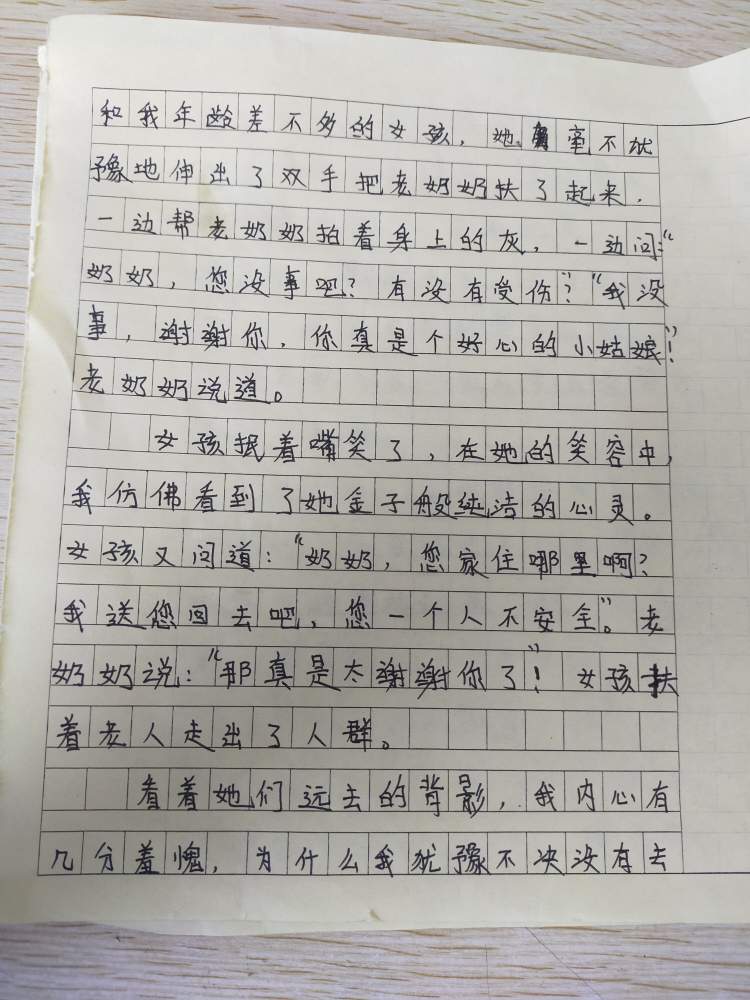 和我年龄差不多的女孩，她毫不犹
豫地伸出了双手把老奶奶扶了起来.
一边帮老奶奶拍着身上的灰，一边问:“
奶奶，您没事吧？有没有受伤？”“我没
事，谢谢你，你真是个好心的小姑娘！”
老奶奶说道。
女孩抿着嘴笑了，在她的笑容中，
我仿佛看到了她金子般纯洁的心灵。
女孩又问道：“奶奶，您家住哪里啊？
我送您回去吧，您一个人不安全。”老
奶奶说：“那真是太谢谢你了”！女孩扶
着老人走出了人群。
看着她们远去的背影，我内心有
几分羞愧，为什么我犹豫不决没有去